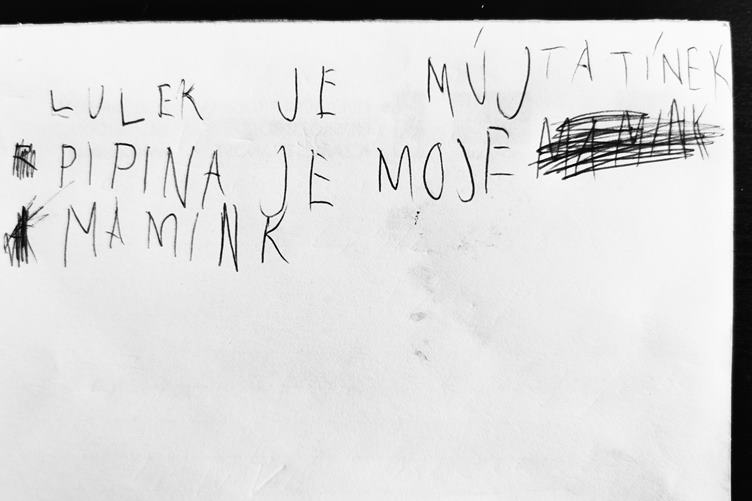 LULEK JE MŮJ TATÍNEK
PIPINA JE MOJE
MAMINK